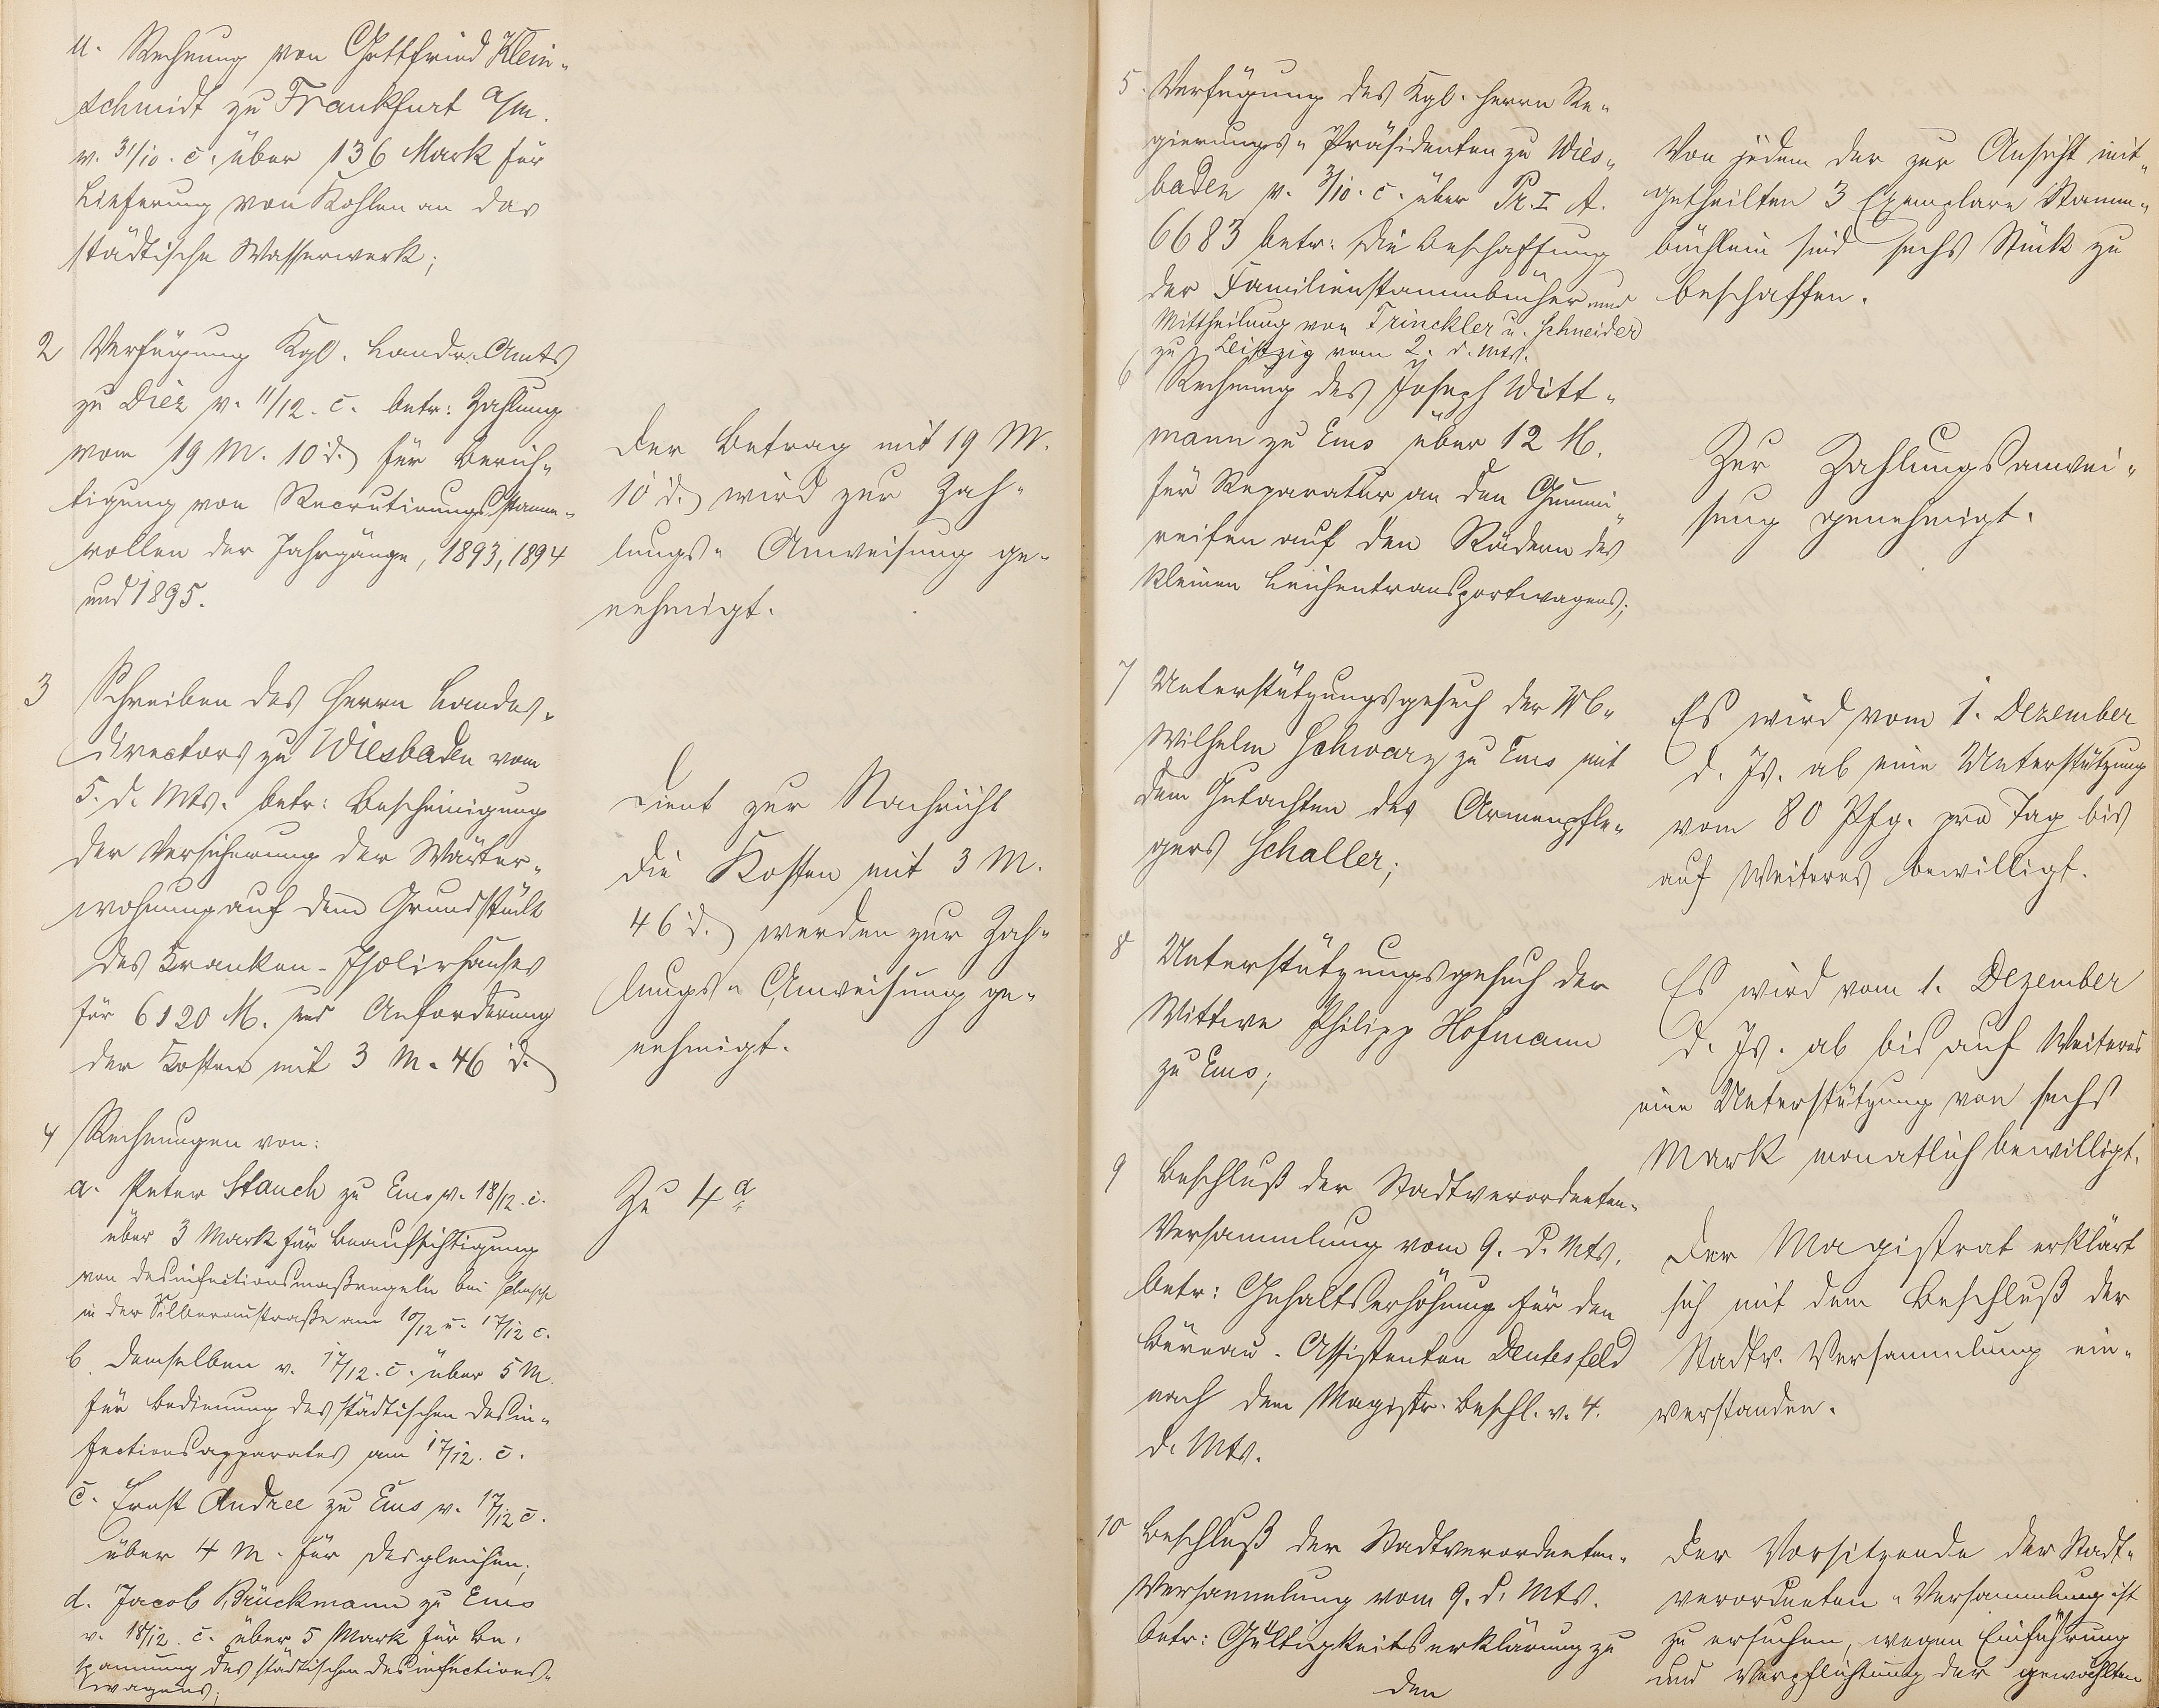 u. Rechnung von Gottfried Klein-
schmidt zu Frankfurt a/m.
v. 31/10. c. über 136 Mark für
Lieferung von Kohlen an das
städtische Wasserwerk;
2 Verfügung Kgl. Landr. Amts
zu Diez v. 11/12. c. betr: Zahlung
von 19 M. 10 d. für Berich-
tigung von Recrutirungs Stamm-
rollen der Jahrgänge, 1893, 1894
und 1895.
Der Betrag mit 19 M.
10 d. wird zur Zah-
lungs- Anweisung ge-
nehmigt.
3 Schreiben des Herrn Landes-
directors zu Wiesbaden vom
5. d. Mts. betr: Bescheinigung
der Versicherung der Wärter-
wohnung auf dem Grundstück
des Kranken-Isolirhauses
für 6120 M. und Anforderung
der Kosten mit 3 M. 46 d.
Dient zur Nachricht
Die Kosten mit 3 M.
46 d. werden zur Zah-
lungs- Anweisung ge-
nehmigt.
4 Rechnungen von:
a. Peter Stauch zu Ems v. 18/12. c.
über 3 Mark für Beaufsichtigung
von Desinfectionsmaßregeln bei
in der Silberaustraße am 10/12 u. 17/12 c.
b. Demselben v. 17/12. c. über 5 M.
für Bedienung des städtischen Desin-
fectionsapparates am 17/12. c.
c. Ernst Andree zu Ems v. 17/12 c.
über 4 M. für desgleichen;
d. Jacob Brückmann zu Ems
v. 18/12. c. über 5 Mark für Be-
spannung des städtischen Desinfections-
wagens;
Zu 4 a
5. Verfügung des Kgl. Herrn Re-
gierungs- Präsidenten zu Wies-
baden v. 3/10. c. über Pr. I A.
6683 betr: die Beschaffung
der Familienstammbücher und
Mittheilung von Trinckler u. Schneider
zu Leipzig vom 2. d. Mts.
Von jedem der zur Ansicht mit-
getheilten 3 Exemplare Stamm-
büchlein sind sechs Stück zu
beschaffen.
6 Rechnung des Joseph Witt-
mann zu Ems über 12 M.
für Reparatur an den Gummi-
reifen auf den Rädern des
kleinen Leichentransportwagens;
Zur Zahlungsanwei-
sung genehmigt.
7 Unterstützungsgesuch der
Wilhelm Schwarz zu Ems mit
dem Gutachten des Armenpfle-
gers Schaller;
Es wird vom 1. Dezember
d. Js. ab eine Unterstützung
von 80 Pfg. pro Tag bis
auf Weiteres bewilligt.
8 Unterstützungsgesuch der
Wittwe Philipp Hofmann
zu Ems;
Es wird vom 1. Dezember
d. Js. ab bis auf Weiteres
eine Unterstützung von sechs
Mark monatlich bewilligt.
9 Beschluß der Stadtverordneten-
Versammlung vom 9. d. Mts.
betr: Gehaltserhöhung für den
Büreau-Assistenten Deutesfeld
nach dem Magistr. Beschl. v. 4.
d. Mts.
Der Magistrat erklärt
sich mit dem Beschluß der
Stadtv. Versammlung ein-
verstanden.
10 Beschluß der Stadtverordneten-
Versammlung vom 9. d. Mts.
betr: Gültigkeitserklärung zu
den
Der Vorsitzende der Stadt-
verordneten-Versammlung ist
zu ersuchen, wegen Einführung
und Verpflichtung der gewählten